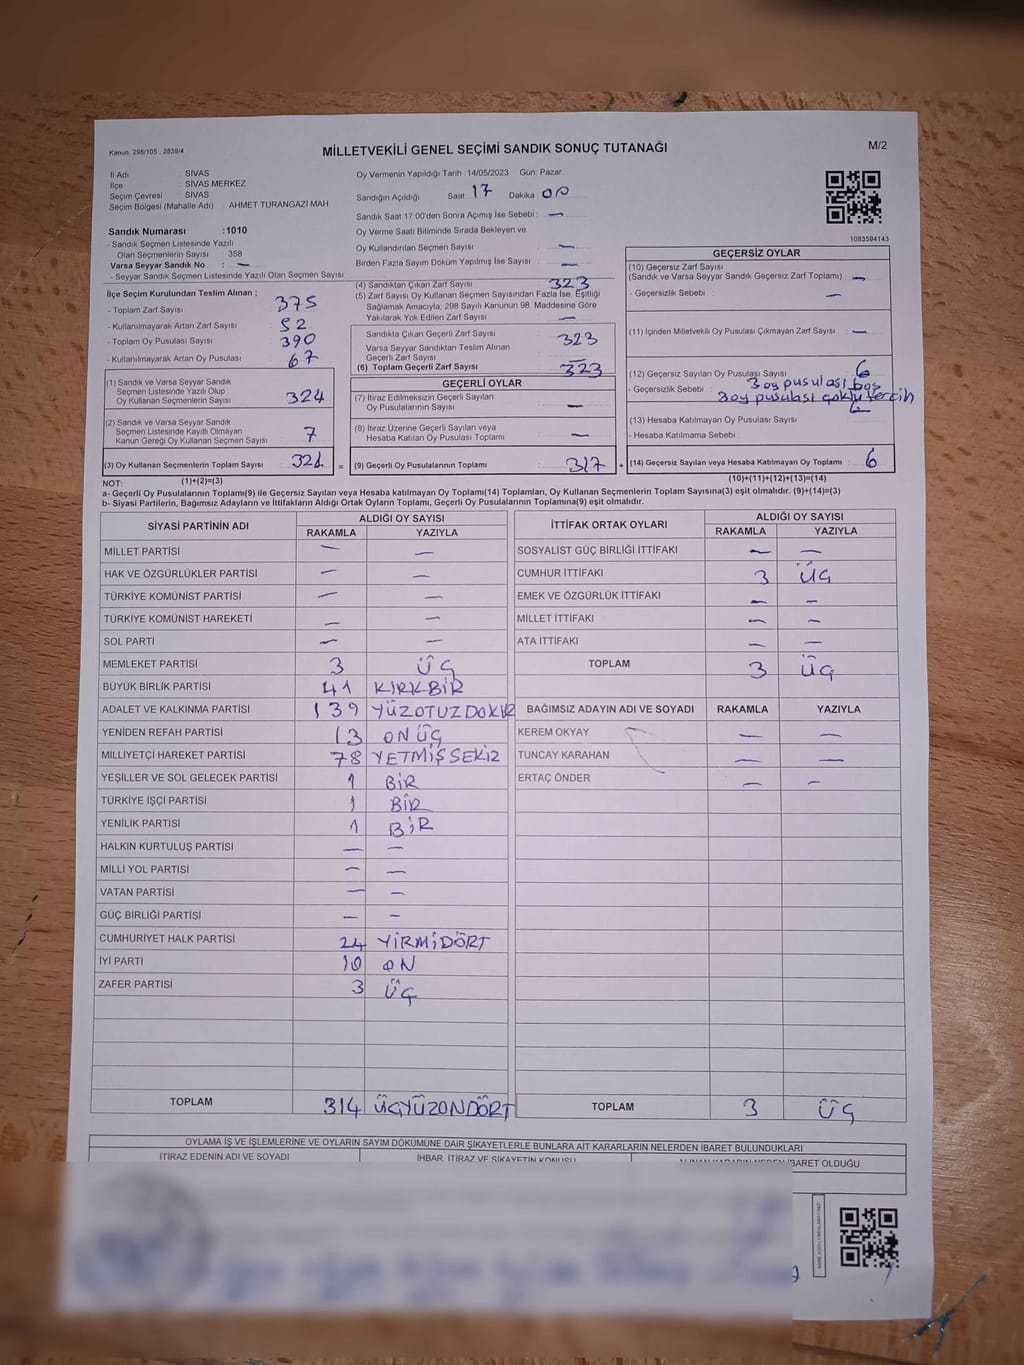 Kanun, 298/105 : 2839/4
MİLLETVEKİLİ GENEL SEÇİMİ SANDIK SONUÇ TUTANAĞI
M/2
İl Adı SİVAS
İlçe SİVAS MERKEZ
Seçim Çevresi SİVAS
Seçim Bölgesi (Mahalle Adı) : AHMET TURANGAZİ MAH
Sandık Numarası :1010
- Sandık Seçmen Listesinde Yazılı
Olan Seçmenlerin Sayısı 358
Varsa Seyyar Sandık No : —
- Seyyar Sandık Seçmen Listesinde Yazılı Olan Seçmen Sayısı
Oy Vermenin Yapıldığı Tarih :14/05/2023 Gün: Pazar
Sandığın Açıldığı Saat 17 Dakika 00
Sandık Saat 17:00'den Sonra Açımış İse Sebebi : —
Oy Verme Saati Bitiminde Sırada Bekleyen ve
Oy Kullandırılan Seçmen Sayısı —
Birden Fazla Sayım Döküm Yapılmış İse Sayısı —
1083594143
İlçe Seçim Kurulundan Teslim Alınan ;
- Toplam Zarf Sayısı 375
- Kullanılmayarak Artan Zarf Sayısı 52
- Toplam Oy Pusulası Sayısı 390
- Kullanılmayarak Artan Oy Pusulası 67
(1) Sandık ve Varsa Seyyar Sandık
Seçmen Listesinde Yazılı Olup
Oy Kullanan Seçmenlerin Sayısı 324
(2) Sandık ve Varsa Seyyar Sandık
Seçmen Listesinde Kayıtlı Olmayan
Kanun Gereği Oy Kullanan Seçmen Sayısı 7
(3) Oy Kullanan Seçmenlerin Toplam Sayısı =
(4) Sandıktan Çıkan Zarf Sayısı 323
(5) Zarf Sayısı Oy Kullanan Seçmen Sayısından Fazla İse, Eşitliği
Sağlamak Amacıyla, 298 Sayılı Kanunun 98. Maddesine Göre
Yakılarak Yok Edilen Zarf Sayısı —
Sandıkta Çıkan Geçerli Zarf Sayısı 323
Varsa Seyyar Sandıktan Teslim Alınan
Geçerli Zarf Sayısı —
(6) Toplam Geçerli Zarf Sayısı 323
GEÇERLİ OYLAR
(7) İtiraz Edilmeksizin Geçerli Sayılan
Oy Pusulalarının Sayısı —
(8) İtiraz Üzerine Geçerli Sayılan veya
Hesaba Katılan Oy Pusulası Toplamı —
(9) Geçerli Oy Pusulalarının Toplamı 317 +
GEÇERSİZ OYLAR
(10) Geçersiz Zarf Sayısı
(Sandık ve Varsa Seyyar Sandık Geçersiz Zarf Toplamı) —
- Geçersizlik Sebebi : —
(11) İçinden Milletvekili Oy Pusulası Çıkmayan Zarf Sayısı —
(12) Geçersiz Sayılan Oy Pusulası Sayısı 6
- Geçersizlik Sebebi : 3 oy pusulası boş
3 oy pusulası çoklu tercih
(13) Hesaba Katılmayan Oy Pusulası Sayısı
- Hesaba Katılmama Sebebi
(14) Geçersiz Sayılan veya Hesaba Katılmayan Oy Toplamı 6
NOT: (1)+(2)=(3) (10)+(11)+(12)+(13)=(14)
a- Geçerli Oy Pusulalarının Toplamı(9) ile Geçersiz Sayılan veya Hesaba katılmayan Oy Toplamı(14) Toplamları, Oy Kullanan Seçmenlerin Toplam Sayısına(3) eşit olmalıdır. (9)+(14)=(3)
b- Siyasi Partilerin, Bağımsız Adayların ve İttifakların Aldığı Ortak Oyların Toplamı, Geçerli Oy Pusulalarının Toplamına(9) eşit olmalıdır.
SİYASİ PARTİNİN ADI ALDIĞI OY SAYISI
RAKAMLA YAZIYLA
MİLLET PARTİSİ — —
HAK VE ÖZGÜRLÜKLER PARTİSİ — —
TÜRKİYE KOMÜNİST PARTİSİ — —
TÜRKİYE KOMÜNİST HAREKETİ — —
SOL PARTİ — —
MEMLEKET PARTİSİ 3 ÜÇ
BÜYÜK BİRLİK PARTİSİ 41 KIRKBİR
ADALET VE KALKINMA PARTİSİ 139 YÜZOTUZDOKUZ
YENİDEN REFAH PARTİSİ 13 ONÜÇ
MİLLİYETÇİ HAREKET PARTİSİ 78 YETMİŞSEKİZ
YEŞİLLER VE SOL GELECEK PARTİSİ 1 BİR
TÜRKİYE İŞÇİ PARTİSİ 1 BİR
YENİLİK PARTİSİ 1 BİR
HALKIN KURTULUŞ PARTİSİ — —
MİLLİ YOL PARTİSİ — —
VATAN PARTİSİ — —
GÜÇ BİRLİĞİ PARTİSİ — —
CUMHURİYET HALK PARTİSİ 24 YİRMİDÖRT
İYİ PARTİ 10 ON
ZAFER PARTİSİ 3 ÜÇ
TOPLAM 314 ÜÇYÜZONDÖRT
İTTİFAK ORTAK OYLARI ALDIĞI OY SAYISI
RAKAMLA YAZIYLA
SOSYALİST GÜÇ BİRLİĞİ İTTİFAKI — —
CUMHUR İTTİFAKI 3 ÜÇ
EMEK VE ÖZGÜRLÜK İTTİFAKI — —
MİLLET İTTİFAKI — —
ATA İTTİFAKI — —
TOPLAM 3 ÜÇ
BAĞIMSIZ ADAYIN ADI VE SOYADI RAKAMLA YAZIYLA
KEREM OKYAY — —
TUNCAY KARAHAN — —
ERTAÇ ÖNDER — —
TOPLAM 3 ÜÇ
OYLAMA İŞ VE İŞLEMLERİNE VE OYLARIN SAYIM DÖKÜMÜNE DAİR ŞİKAYETLERLE BUNLARA AİT KARARLARIN NELERDEN İBARET BULUNDUKLARI
İTİRAZ EDENİN ADI VE SOYADI
İHBAR, İTİRAZ VE ŞİKAYETİN KONUSU
İBARET OLDUĞU